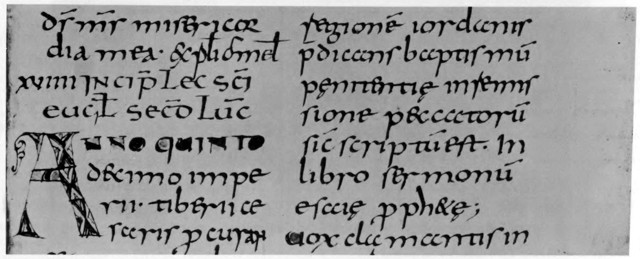 d̄s m̄s misericor
dia mea· &
xviiii INcip̄ Lec sc̄i
secd̄ Luc̄
ANNO QUINTO
decimo impe
rii· tiberii ce
saris p̄curan
regionē iordanis
p̄dicans baptismū
pęnitentię in remis
sione peccatorū
sic̄ scriptū est· In
libro sermonū
esaię p̄ph&ę;
uox clamantis in